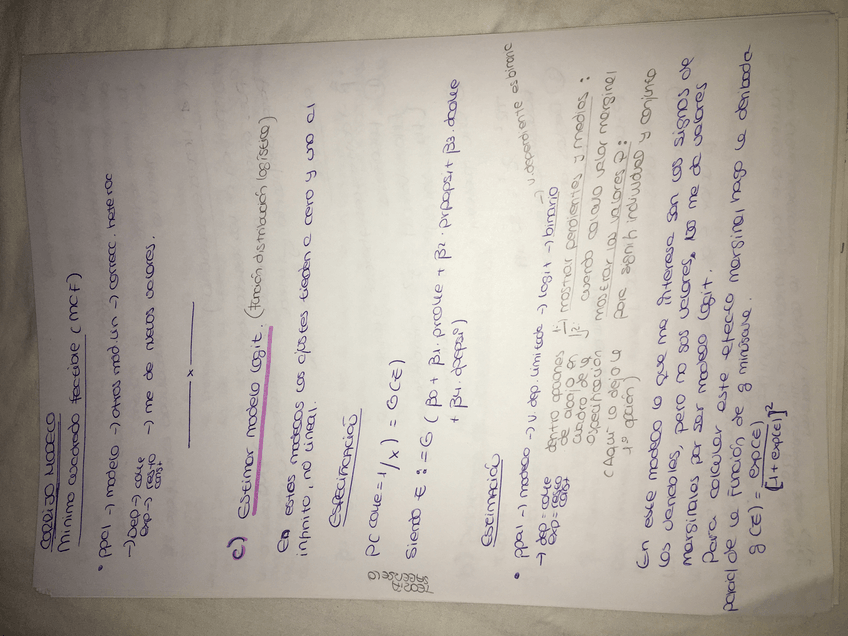 CORRIJO MODELO
Mínimo cuadrado factible (MCF)
• ppal → modelo → otros mod. lin → correcc. heteroc
→ Dep → coke
exp → resto
const
→ me da nuevos valores.
x
c) Estimar modelo logit. (función distribución logística)
En estos modelos los ajustes tienden a cero y uno al
infinito, no lineal.
ESPECIFICACIÓN
P(coke = 1/x) = G(E)
Siendo E := G (β0 + β1 · pcoke + β2 · prpepsi + β3 · dcoke
+ β4 · dpepsi)
ESTIMACIÓN
• ppal → modelo → v. dep. limitada → logit → binario → v. dependiente es binaria
→ dep = coke
exp = resto
const
dentro opciones
de abajo en
cuadro de la
especificación
(Aquí lo dejo la
1ª opción)
1- mostrar pendientes y medias:
cuando calculo valor marginal
2- mostrar los valores p:
para signif. individual y conjunta
En este modelo lo que me interesa son los signos de
las variables, pero no sus valores, No me da valores
marginales por ser modelo logit.
Para calcular este efecto marginal hago la derivada
parcial de la función de g minúscula.
g(E) = exp(E) / [1 + exp(E)]²